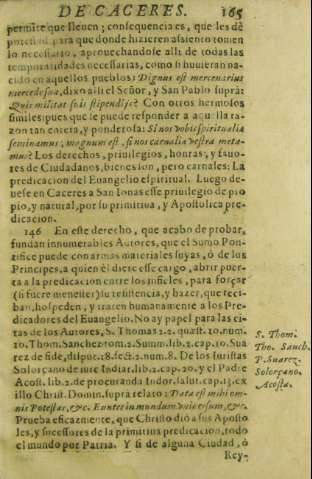 DE CACERES. 165
permite que lleuen; consequencia es, que les dè
potestad para que donde hizieren asiento tomen
lo necessario, aprouechandose alli de todas las
temporalidades necessarias, como si hunieran na-
cido en aquellos pueblos: Dignus est mercenarius
mercede sua, dixo alli el Señor, y San Pablo suprà:
Quis militat suis stipendijs? Con otros hermosos
similes: pues que se puede responder a aquella ra-
zon tan entera, y ponderosa: Si nos vobis spiritualia
seminamus; magnum est, si nos carnalia vestra meta-
mus? Los derechos, priuilegios, honras, y fauo-
res de Ciudadanos, bienes son, pero carnales: La
predicacion del Euangelio espiritual. Luego de-
uese en Caceres a San Ionas esse priuilegio de pro
pio, y natural, por su primitiua, y Apostolica pre-
dicacion.
146 En este derecho, que acabo de probar,
fundan innumerables Autores, que el Sumo Pon-
tifice puede con armas materiales suyas, ò de los
Principes, a quien èl diere esse cargo, abrir puer-
ta a la predicacion entre los infieles, para forçar
(si fuere menester) su resistencia, y hazer, que reci-
ban, hospeden, y traten humanamente a los Pre-
dicadores del Euangelio. No ay papel para las ci-
tas de los Autores, S. Thomas 2.2. quæst. 10. num.
10. Thom. Sanchez tom. 2. Summ. lib. 2. cap. 10. Sua
rez de fide, disput. 18. sect. 2. num. 8. De los Iuristas
Solorçano de iure Indiar. lib. 2. cap. 20. y el Padre
Acost. lib. 2. de procuranda Indor. salut. cap. 13. ex
illo Christ. Domin. supra relato: Data est mihi om-
nis Potestas, &c. Euntes in mundum vniuersum, &c.
Prueba eficazmente, que Christo diò a sus Aposto
les, y sucessores de la primitiua predicacion, todo
el mundo por Patria. Y si de alguna Ciudad, ò
Rey-
S. Thom.
Tho. Sanch.
P. Suarez.
Solorçano.
Acosta.